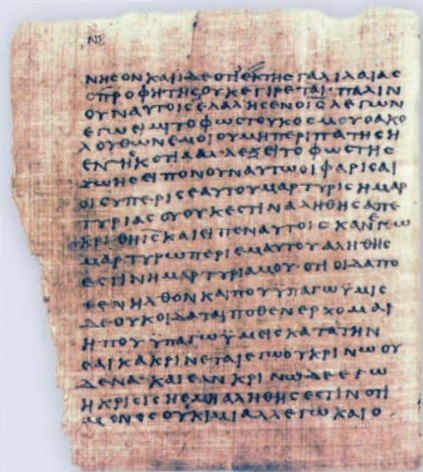 ΝΒ
ΝΗϹΟΝΚΑΙΙΔΕΟΤΙΕΚΤΗϹΓΑΛΙΛΑΙΑϹ
ΟΠΡΟΦΗΤΗϹΟΥΚΕΓΙΡΕΤΑΙ·ΠΑΛΙΝ
ΟΥΝΑΥΤΟΙϹΕΛΑΛΗϹΕΝΟΙ̅Ϲ̅ΛΕΓΩΝ
ΕΓΩΕΙΜΙΤΟΦΩϹΤΟΥΚΟϹΜΟΥΟΑΚΟ
ΛΟΥΘΩΝΕΜΟΙΟΥΜΗΠΕΡΙΠΑΤΗϹΗ
ΕΝΤΗϹΚΟΤΙΑΑΛΛΕΞΕΙΤΟΦΩϹΤΗϹ
ΖΩΗϹΕΙΠΟΝΟΥΝΑΥΤΩΟΙΦΑΡΙϹΑΙ
ΟΙϹΥΠΕΡΙϹΕΑΥΤΟΥΜΑΡΤΥΡΙϹΗΜΑΡ
ΤΥΡΙΑϹΟΥΟΥΚΕϹΤΙΝΑΛΗΘΗϹΑΠΕ
ΚΡΙΘΗΙ̅Ϲ̅ΚΑΙΕΙΠΕΝΑΥΤΟΙϹΚΑΝΕΓΩ
ΜΑΡΤΥΡΩΠΕΡΙΕΜΑΥΤΟΥΑΛΗΘΗϹ
ΕϹΤΙΝΗΜΑΡΤΥΡΙΑΜΟΥ·ΟΤΙΟΙΔΑΠΟ
ΘΕΝΗΛΘΟΝΚΑΙΠΟΥΫΠΑΓΩΫΜΙϹ
ΔΕΟΥΚΟΙΔΑΤΑΙΠΟΘΕΝΕΡΧΟΜΑΙ
ΗΠΟΥΫΠΑΓΩΫΜΕΙϹΚΑΤΑΤΗΝ
ϹΑΡΚΑΚΡΙΝΕΤΑΙΕΓΩΟΥΚΡΙΝΩΟΥ
ΔΕΝΑ·ΚΑΙΕΑΝΚΡΙΝΩΔΕΕΓΩ
ΗΚΡΙϹΙϹΗΕΜΗΑΛΗΘΗϹΕϹΤΙΝΟΤΙ
ΜΟΝΟϹΟΥΚΙΜΙΑΛΛΕΓΩΚΑΙΟ